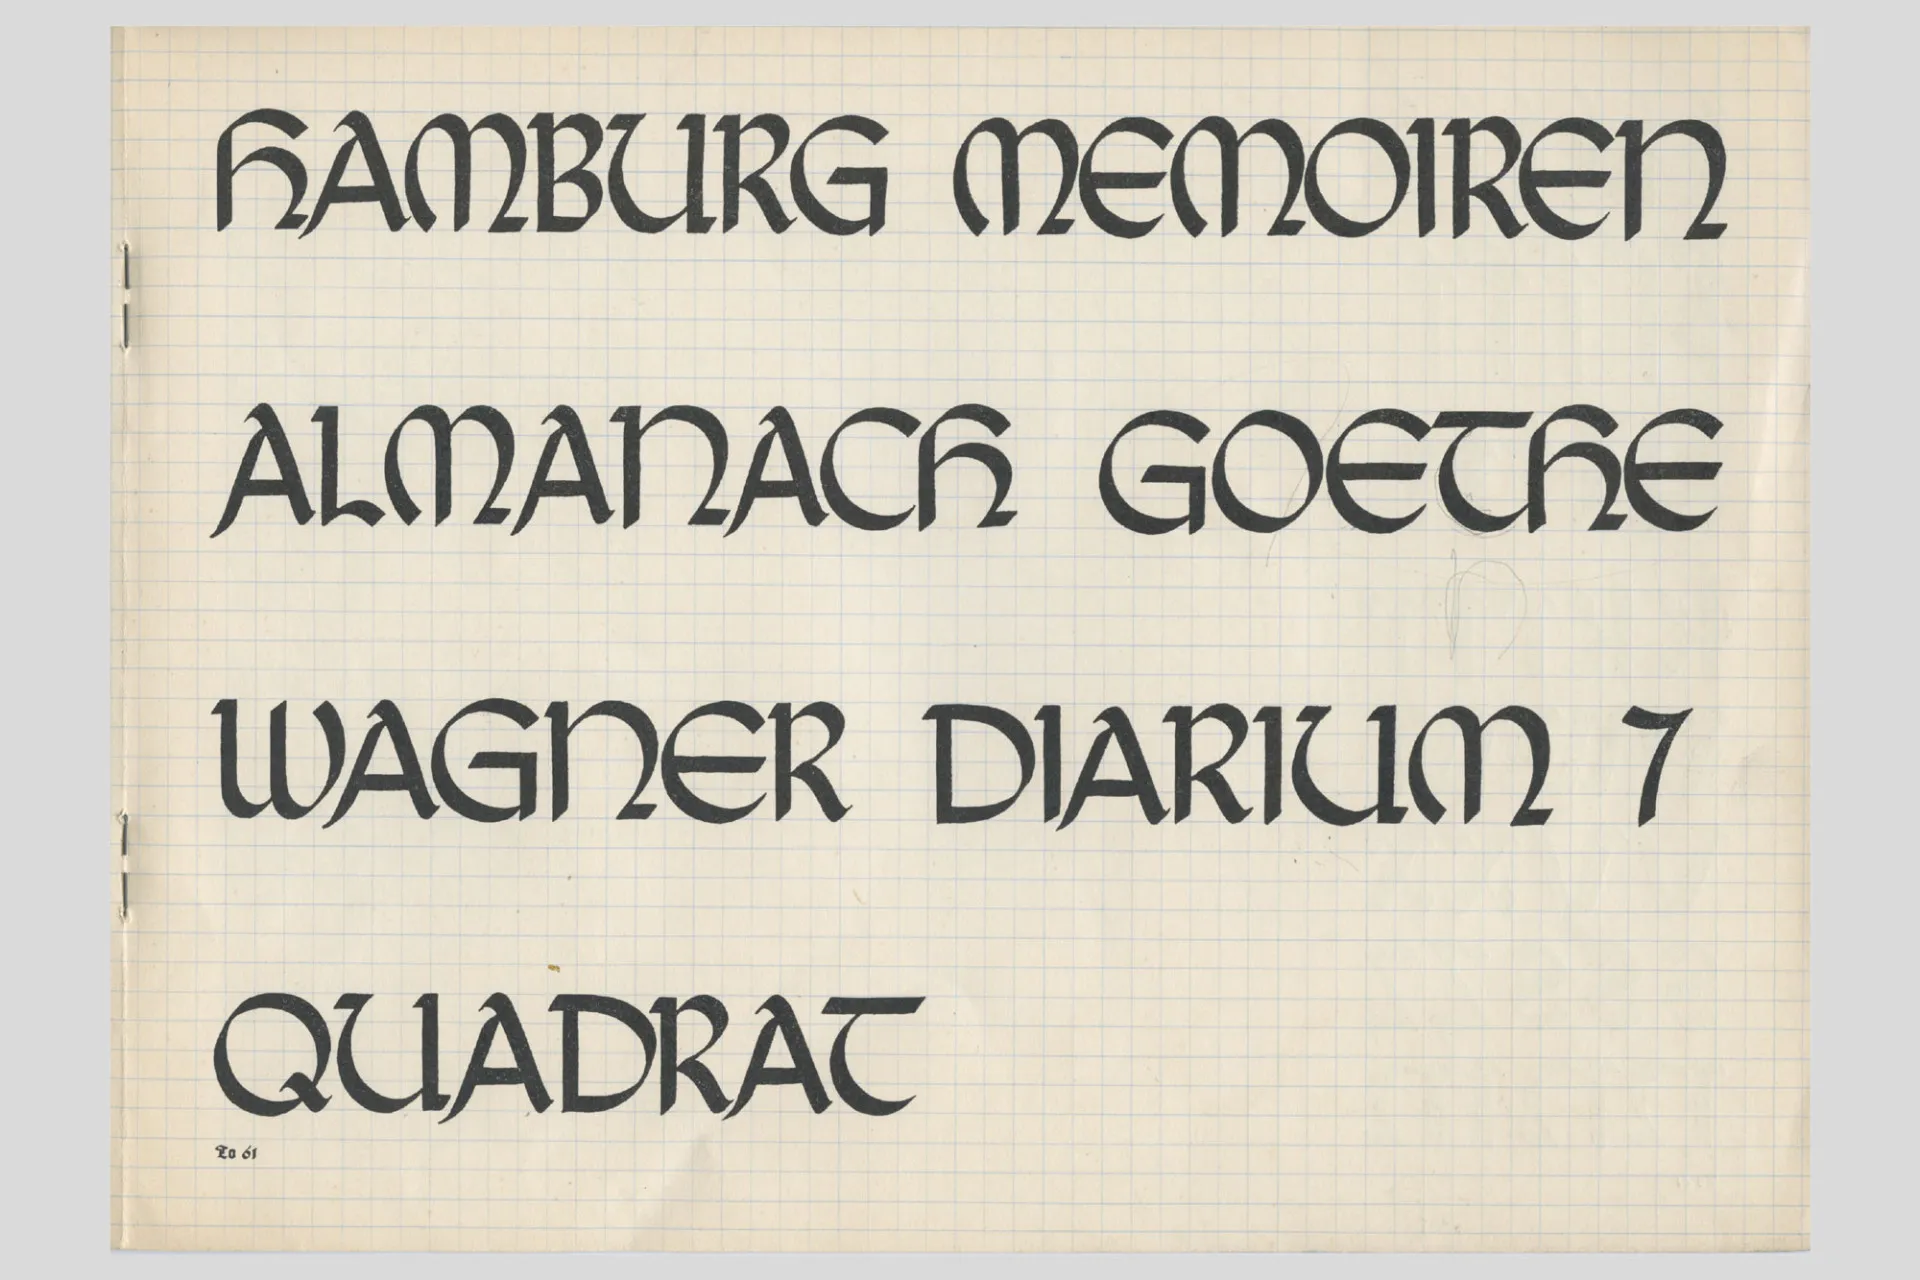 HAMBURG MEMOIREN
ALMANACH GOETHE
WAGNER DIARIUM 7
QUADRAT
To 61